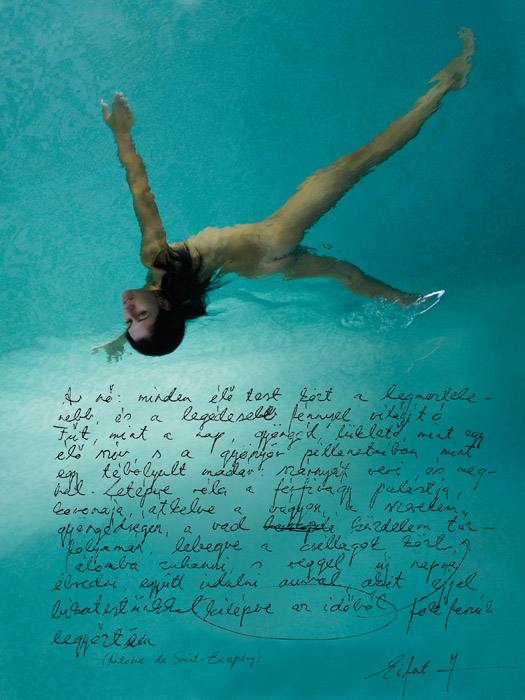 A nő: minden élő test közt a legmeztele-
nebb, és a legédesebb fénnyel világító.
Fűt, mint a nap, gyöngéd, lüktető, mint egy
élő szív, s a gyönyör pillanataiban mint
egy tébolyult madár: szárnyát veri és meg-
hal. Letépve róla a férfivágy palástja,
koronája, átkelve a vágyon, a szerelem,
gyöngédségen, a vad küzdelem túr-
folyamán, lebegve a csillagok közt,
álomba zuhanni, s reggel új napra
ébredni, együtt indulni avval akit éjjel
kilépve az időből
legyőztem
(Antoine de Saint-Exupéry)